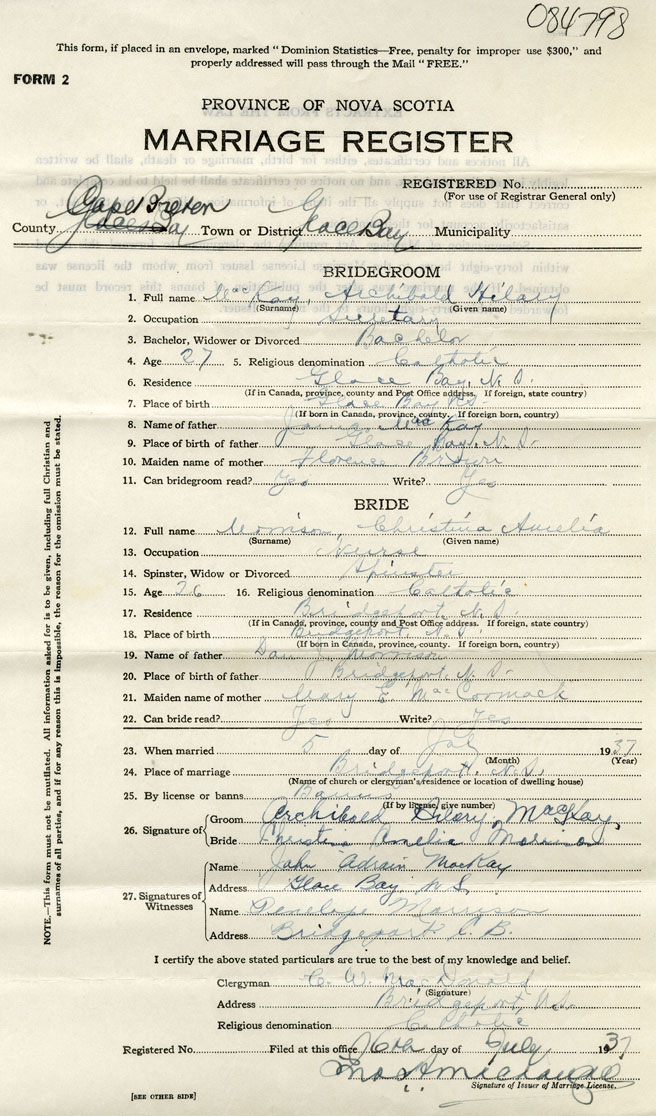 084798
This form, if placed in an envelope, marked "Dominion Statistics—Free, penalty for improper use $300," and
properly addressed will pass through the Mail "FREE."
FORM 2
PROVINCE OF NOVA SCOTIA
MARRIAGE REGISTER
REGISTERED No.
(For use of Registrar General only)
Cape Breton
County Glace Bay Town or District Glace Bay Municipality
BRIDEGROOM
1. Full name MacKay, Archibald Hilary
(Surname) (Given name)
2. Occupation Secretary
3. Bachelor, Widower or Divorced Bachelor
4. Age 27 5. Religious denomination Catholic
6. Residence Glace Bay, N.S.
(If in Canada, province, county and Post Office address. If foreign, state country)
7. Place of birth Glace Bay N.S.
(If born in Canada, province, county. If foreign born, country)
8. Name of father MacKay
9. Place of birth of father Glace Bay, N.S.
10. Maiden name of mother Florence
11. Can bridegroom read? Yes Write? Yes
BRIDE
12. Full name Morrison, Christina Amelia
(Surname) (Given name)
13. Occupation Nurse
14. Spinster, Widow or Divorced Spinster
15. Age 26 16. Religious denomination Catholic
17. Residence Bridgeport, N.S.
(If in Canada, province, county and Post Office address. If foreign, state country)
18. Place of birth Bridgeport, N.S.
(If born in Canada, province, county. If foreign born, country)
19. Name of father Dan J. Morrison
20. Place of birth of father Bridgeport, N.S.
21. Maiden name of mother Mary E. MacCormack
22. Can bride read? Yes Write? Yes
23. When married 5 day of July 1937
(Month) (Year)
24. Place of marriage Bridgeport, N.S.
(Name of church or clergyman's residence or location of dwelling house)
25. By license or banns Banns
(If by license, give number)
26. Signature of
Groom Archibald Hilary MacKay
Bride Christina Amelia Morrison
27. Signatures of Witnesses
Name John Adrain MacKay
Address Glace Bay N.S.
Name Penelope Morrison
Address Bridgeport C.B.
I certify the above stated particulars are true to the best of my knowledge and belief.
Clergyman C. W. MacDonald
(Signature)
Address Bridgeport, N.S.
Religious denomination Catholic
Registered No. Filed at this office 26th day of July 1937
Signature of Issuer of Marriage License.
[SEE OTHER SIDE]
NOTE.—This form must not be mutilated. All information asked for is to be given, including full Christian and
surnames of all parties, and if for any reason this is impossible, the reason for the omission must be stated.